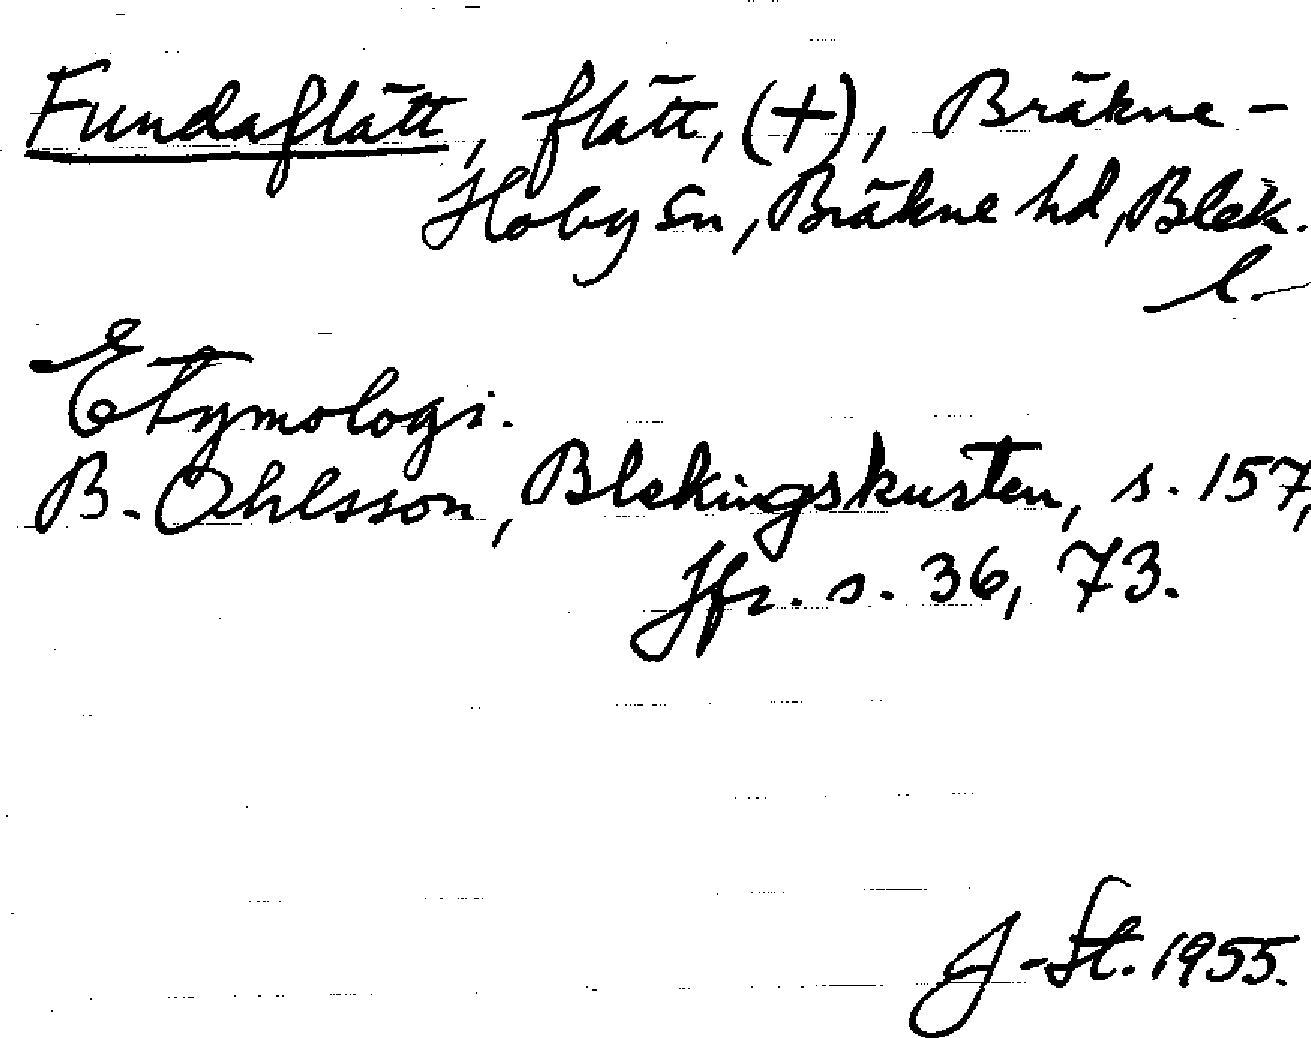 Fundaflätt, flätt, (+), Bräkne-
Hoby sn, Bräkne hd, Blek.
l.
Etymologi.
B. Ohlsson, Blekingskusten, s. 157,
Jfr. s. 36, 73.
J-St. 1955.